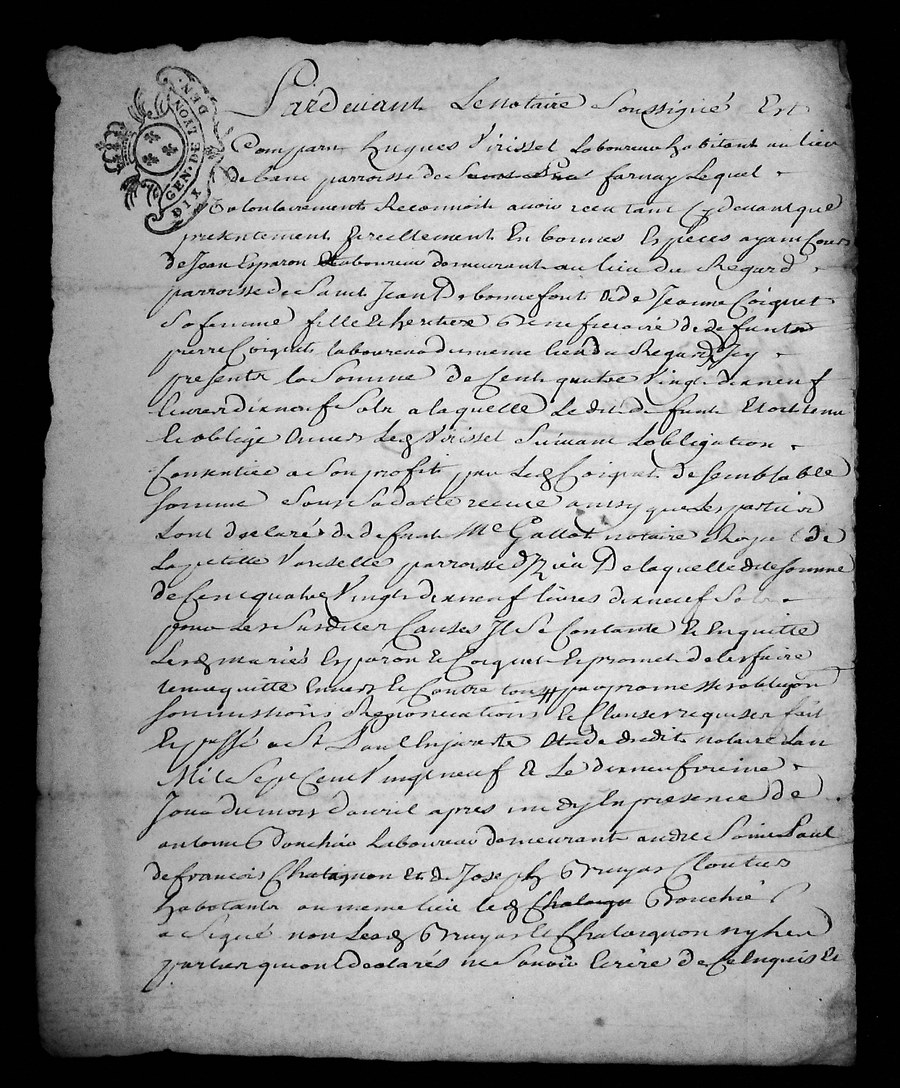 GEN. DE LYON
DIX DEN.
Pardevant Le notaire Soussigné Est
Comparu hugues Virisset Laboureur habitant au lieu
de parroisse de farnay Lequel
volontairement Reconnoit avoir receu tant Cy devant que
presentement Et reellement En bonnes Especes ayant Cours
de Jean Esparon Laboureur demeurant au lieu du Regard
parroisse de Saint Jean De bonnefont & de Jeanne Coignet
Sa femme fille et heritiere Beneficiaire de defunt
pierre Coignet laboureur du meme lieu du Regard Icy
presents la Somme de Cent quatre Vingt dixneuf
livres dixneuf Sols a laquelle Ledit defunt Etoit tenu
Et obligé Envers Led Virisset Suivant Lobligation
Consentiée a Son profit par Led Coignet de Semblable
Somme Sous Sa datte receue ainsy que Les parties
Sont declarés de defunt Me Gallot notaire Royal de
La petitte Varizelle parroisse De laquelle ditte Somme
de Cent quatre Vingt dixneuf livres dixneuf Sols
pour Les Susdites Causes Il Se Contante Et En quitte
Lesd mariés Esparon Et Coignet Et promet de les faire
tenir quitte Envers Et Contre tous par promesses obligõn
Soumissions Renonciations Et Clauses requises fait
Et passé a St Paul En jarest Etude dudit notaire Lan
Mil Sept Cent Vingt neuf Et Le dixneufvieme
Jour du mois davril apres midy En presence de
antoine Bonchié Laboureur demeurant audit Saint Paul
de francois Chataignon Et de Joseph Bruyas Cloutier
habotants au meme lieu led Bonchié
a Signé non Lesd Bruyas Et Chataignon ny les
parties qui ont declarés ne Savoir Ecrire de Ce Enquis Et